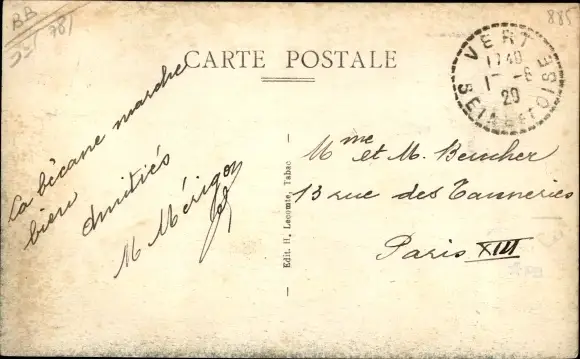 BB
781
885
CARTE POSTALE
VERT
17 40
1 - 8
29
SEINE-ET-OISE
La bécane marche
bien
Amitiés
M Mérigon
Edit. H. Lecomte, Tabac
Mme et M. Beucher
13 rue des Tanneries
Paris XIII